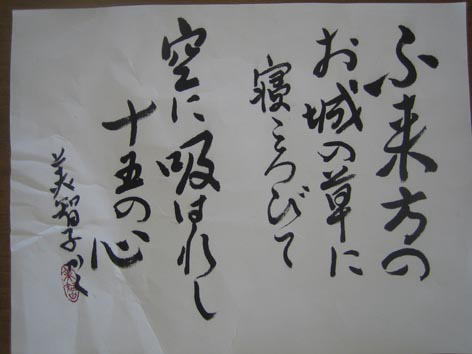 不来方の
お城の草に
寝ころびて
空に吸はれし
十五の心
美智子